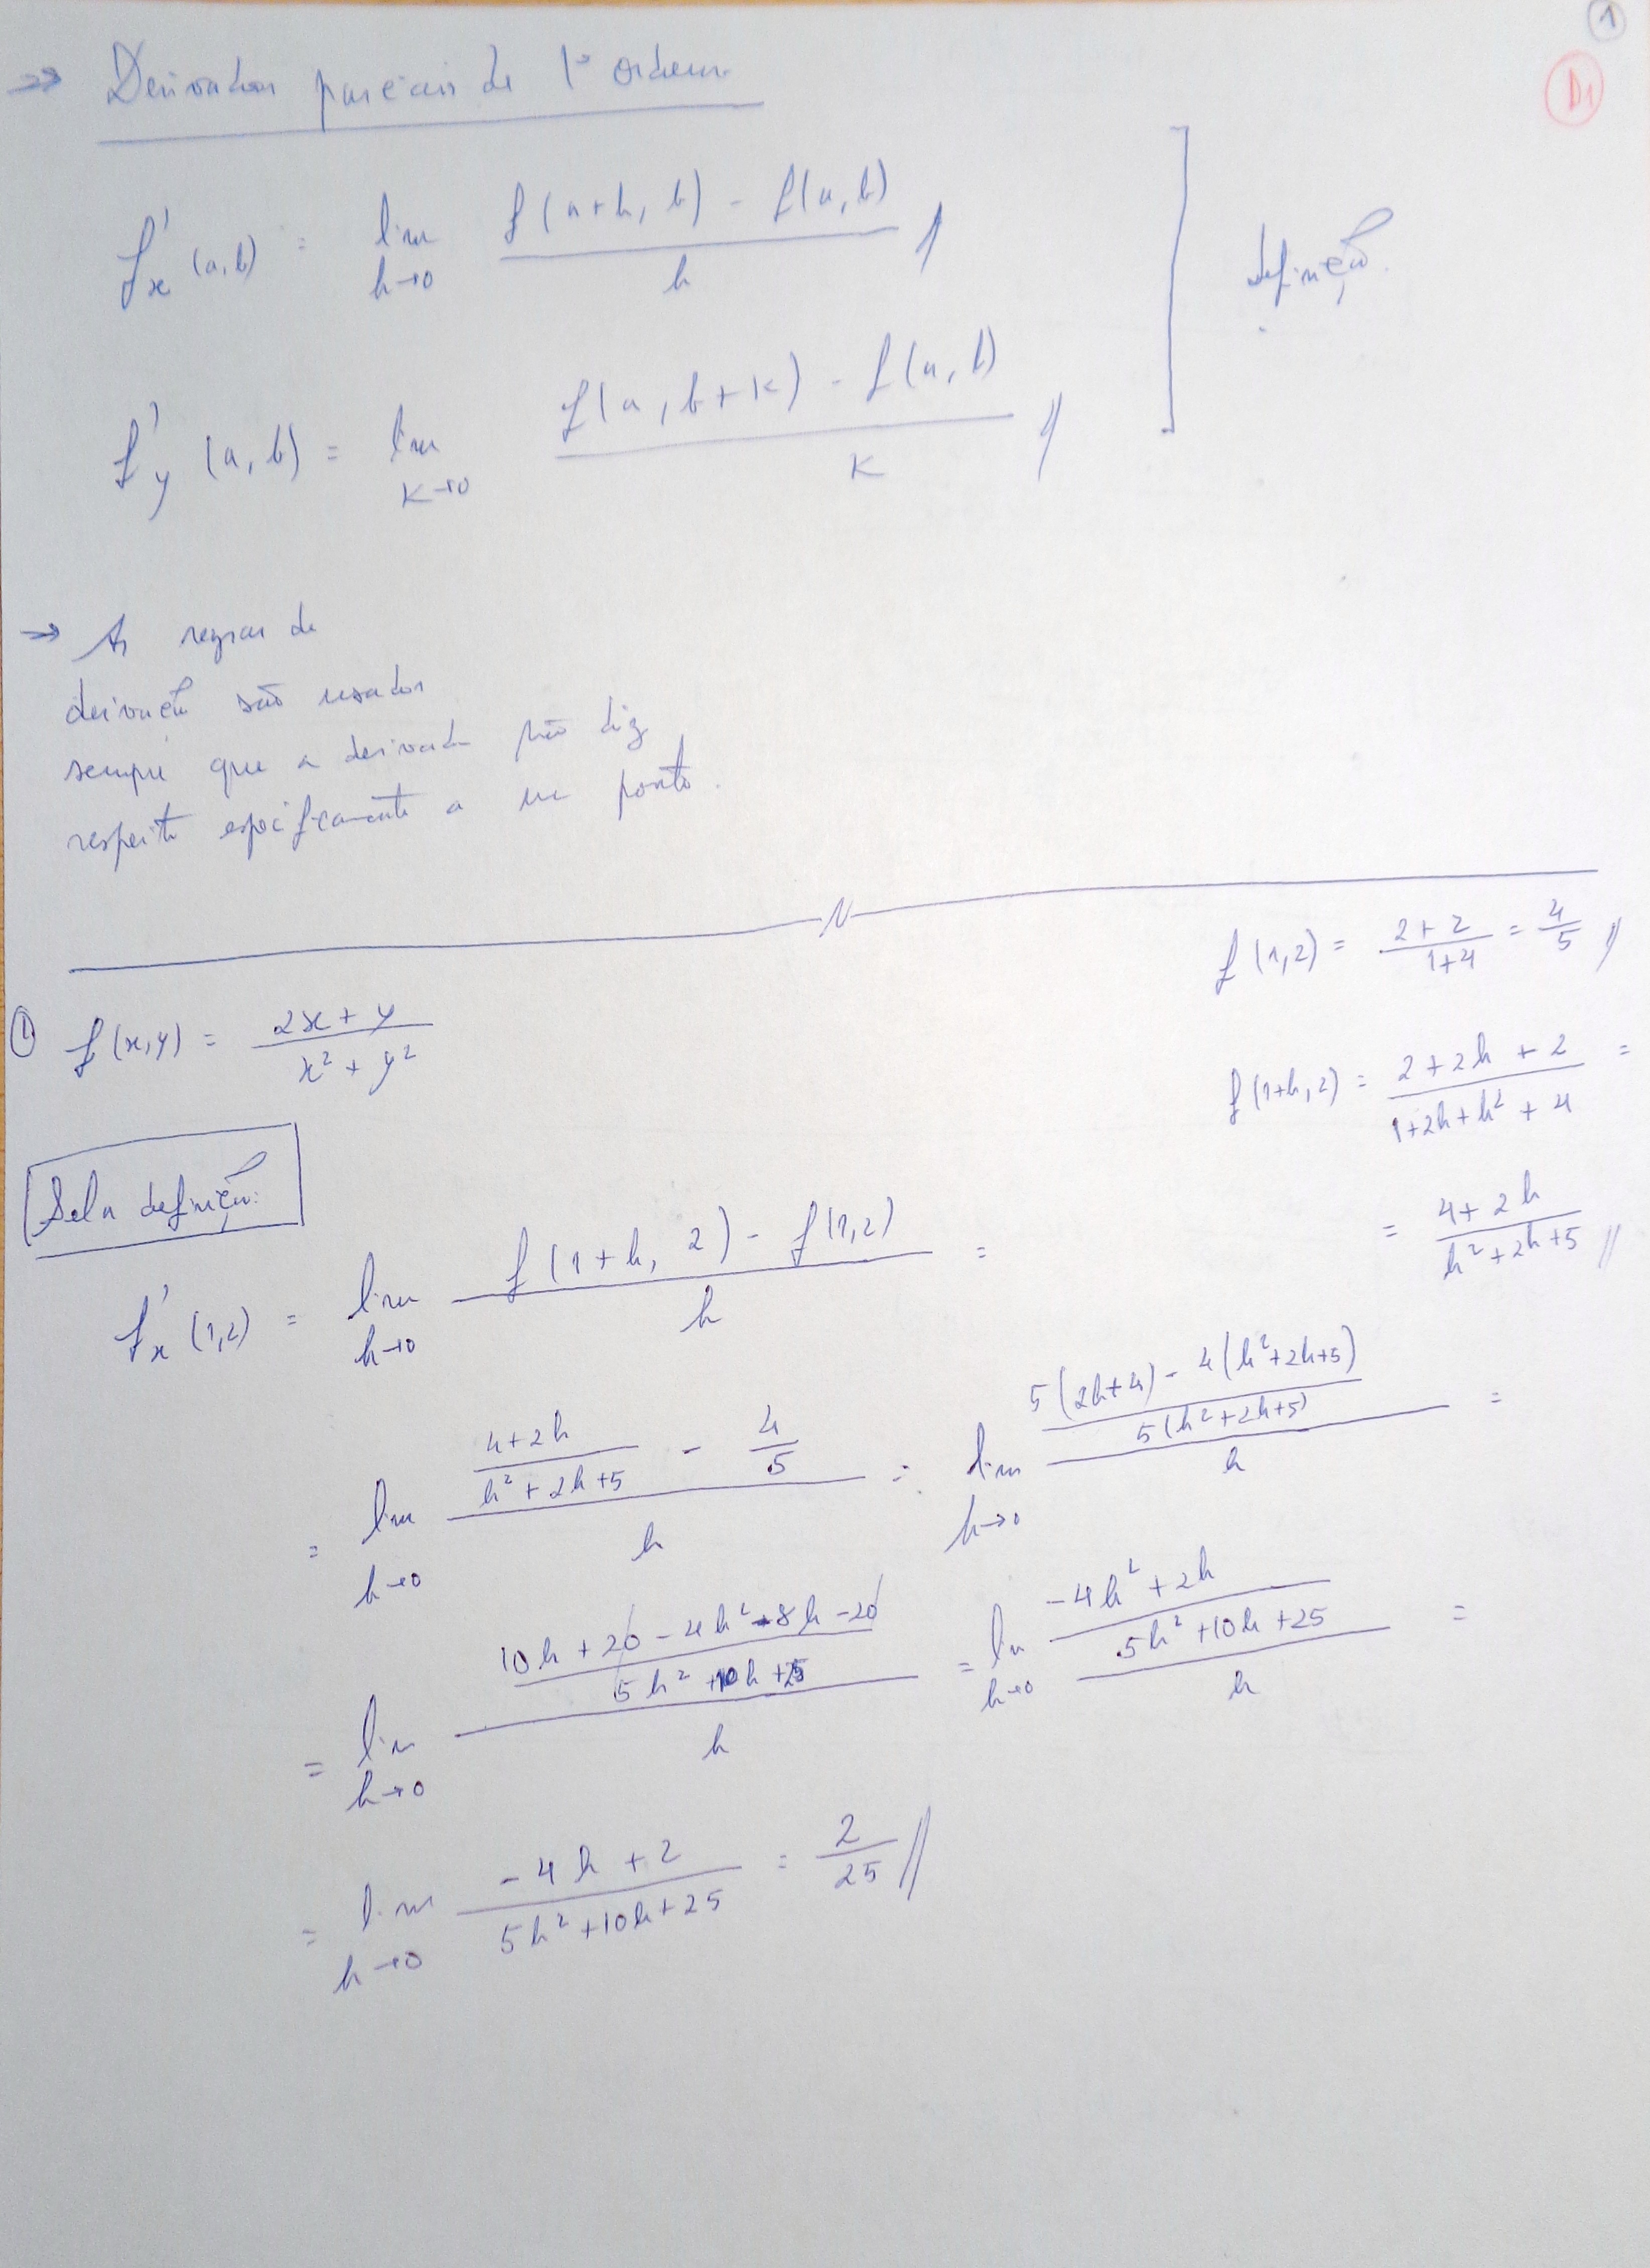 1
D1
→ Derivadas parciais de 1ª ordem
f'x (a,b) = lim h→0 (f(a+h, b) - f(a,b)) / h //
definição.
f'y (a,b) = lim k→0 (f(a, b+k) - f(a,b)) / k //
→ As regras de
derivação são usadas
sempre que a derivada não diz
respeito especificamente a um ponto.
f(1,2) = (2+2)/(1+4) = 4/5 //
① f(x,y) = (2x+y)/(x²+y²)
f(1+h,2) = (2+2h+2)/(1+2h+h²+4) =
= (4+2h)/(h²+2h+5) //
Pela definição:
f'x (1,2) = lim h→0 (f(1+h, 2) - f(1,2)) / h =
= lim h→0 ((4+2h)/(h²+2h+5) - 4/5) / h = lim h→0 ((5(2h+4) - 4(h²+2h+5)) / (5(h²+2h+5))) / h =
= lim h→0 ((10h+20-4h²-8h-20) / (5h²+10h+25)) / h = lim h→0 ((-4h²+2h) / (5h²+10h+25)) / h =
= lim h→0 (-4h+2)/(5h²+10h+25) = 2/25 //